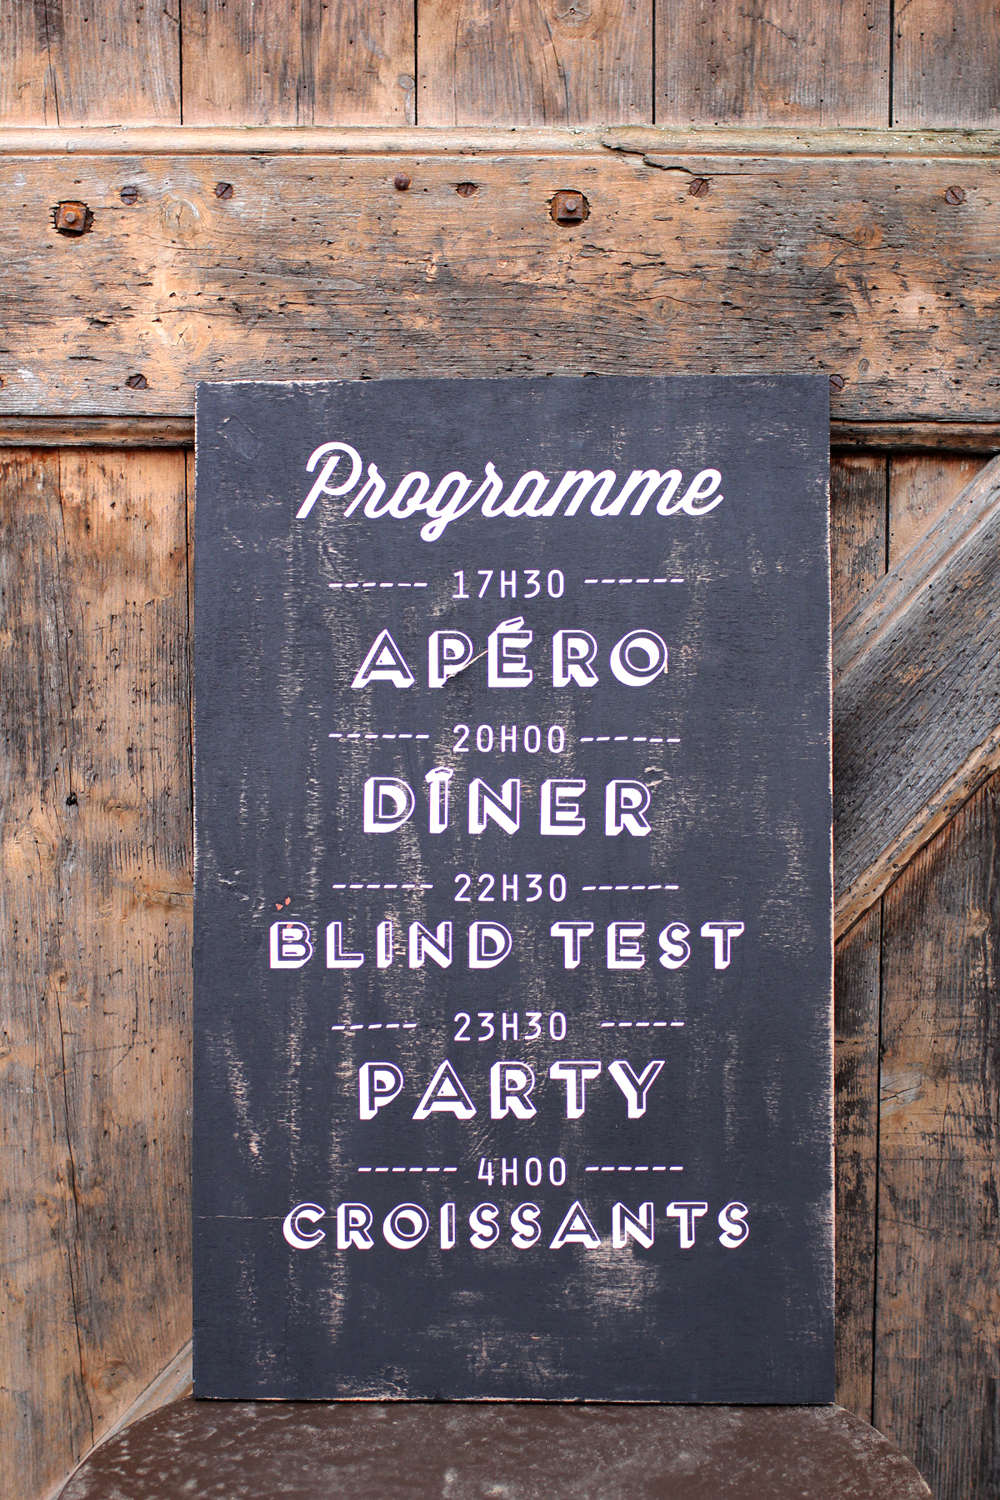 Programme
------ 17H30 ------
APÉRO
------ 20H00 ------
DÎNER
------ 22H30 ------
BLIND TEST
----- 23H30 -----
PARTY
------ 4H00 ------
CROISSANTS